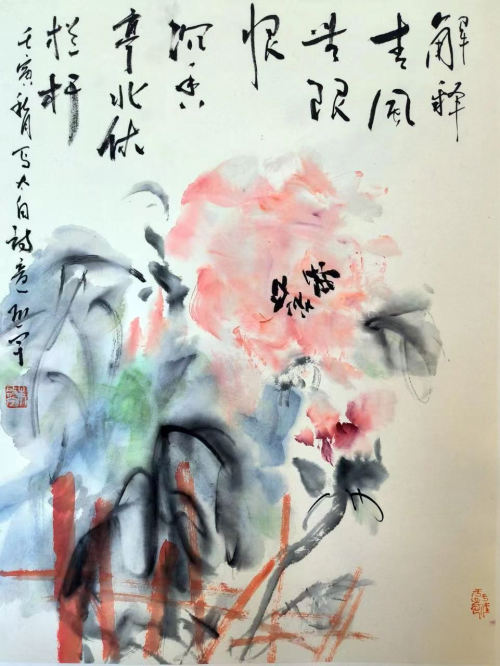 解释
春风
无限
恨
沉香
亭北依
栏杆
壬寅秋月写太白诗意